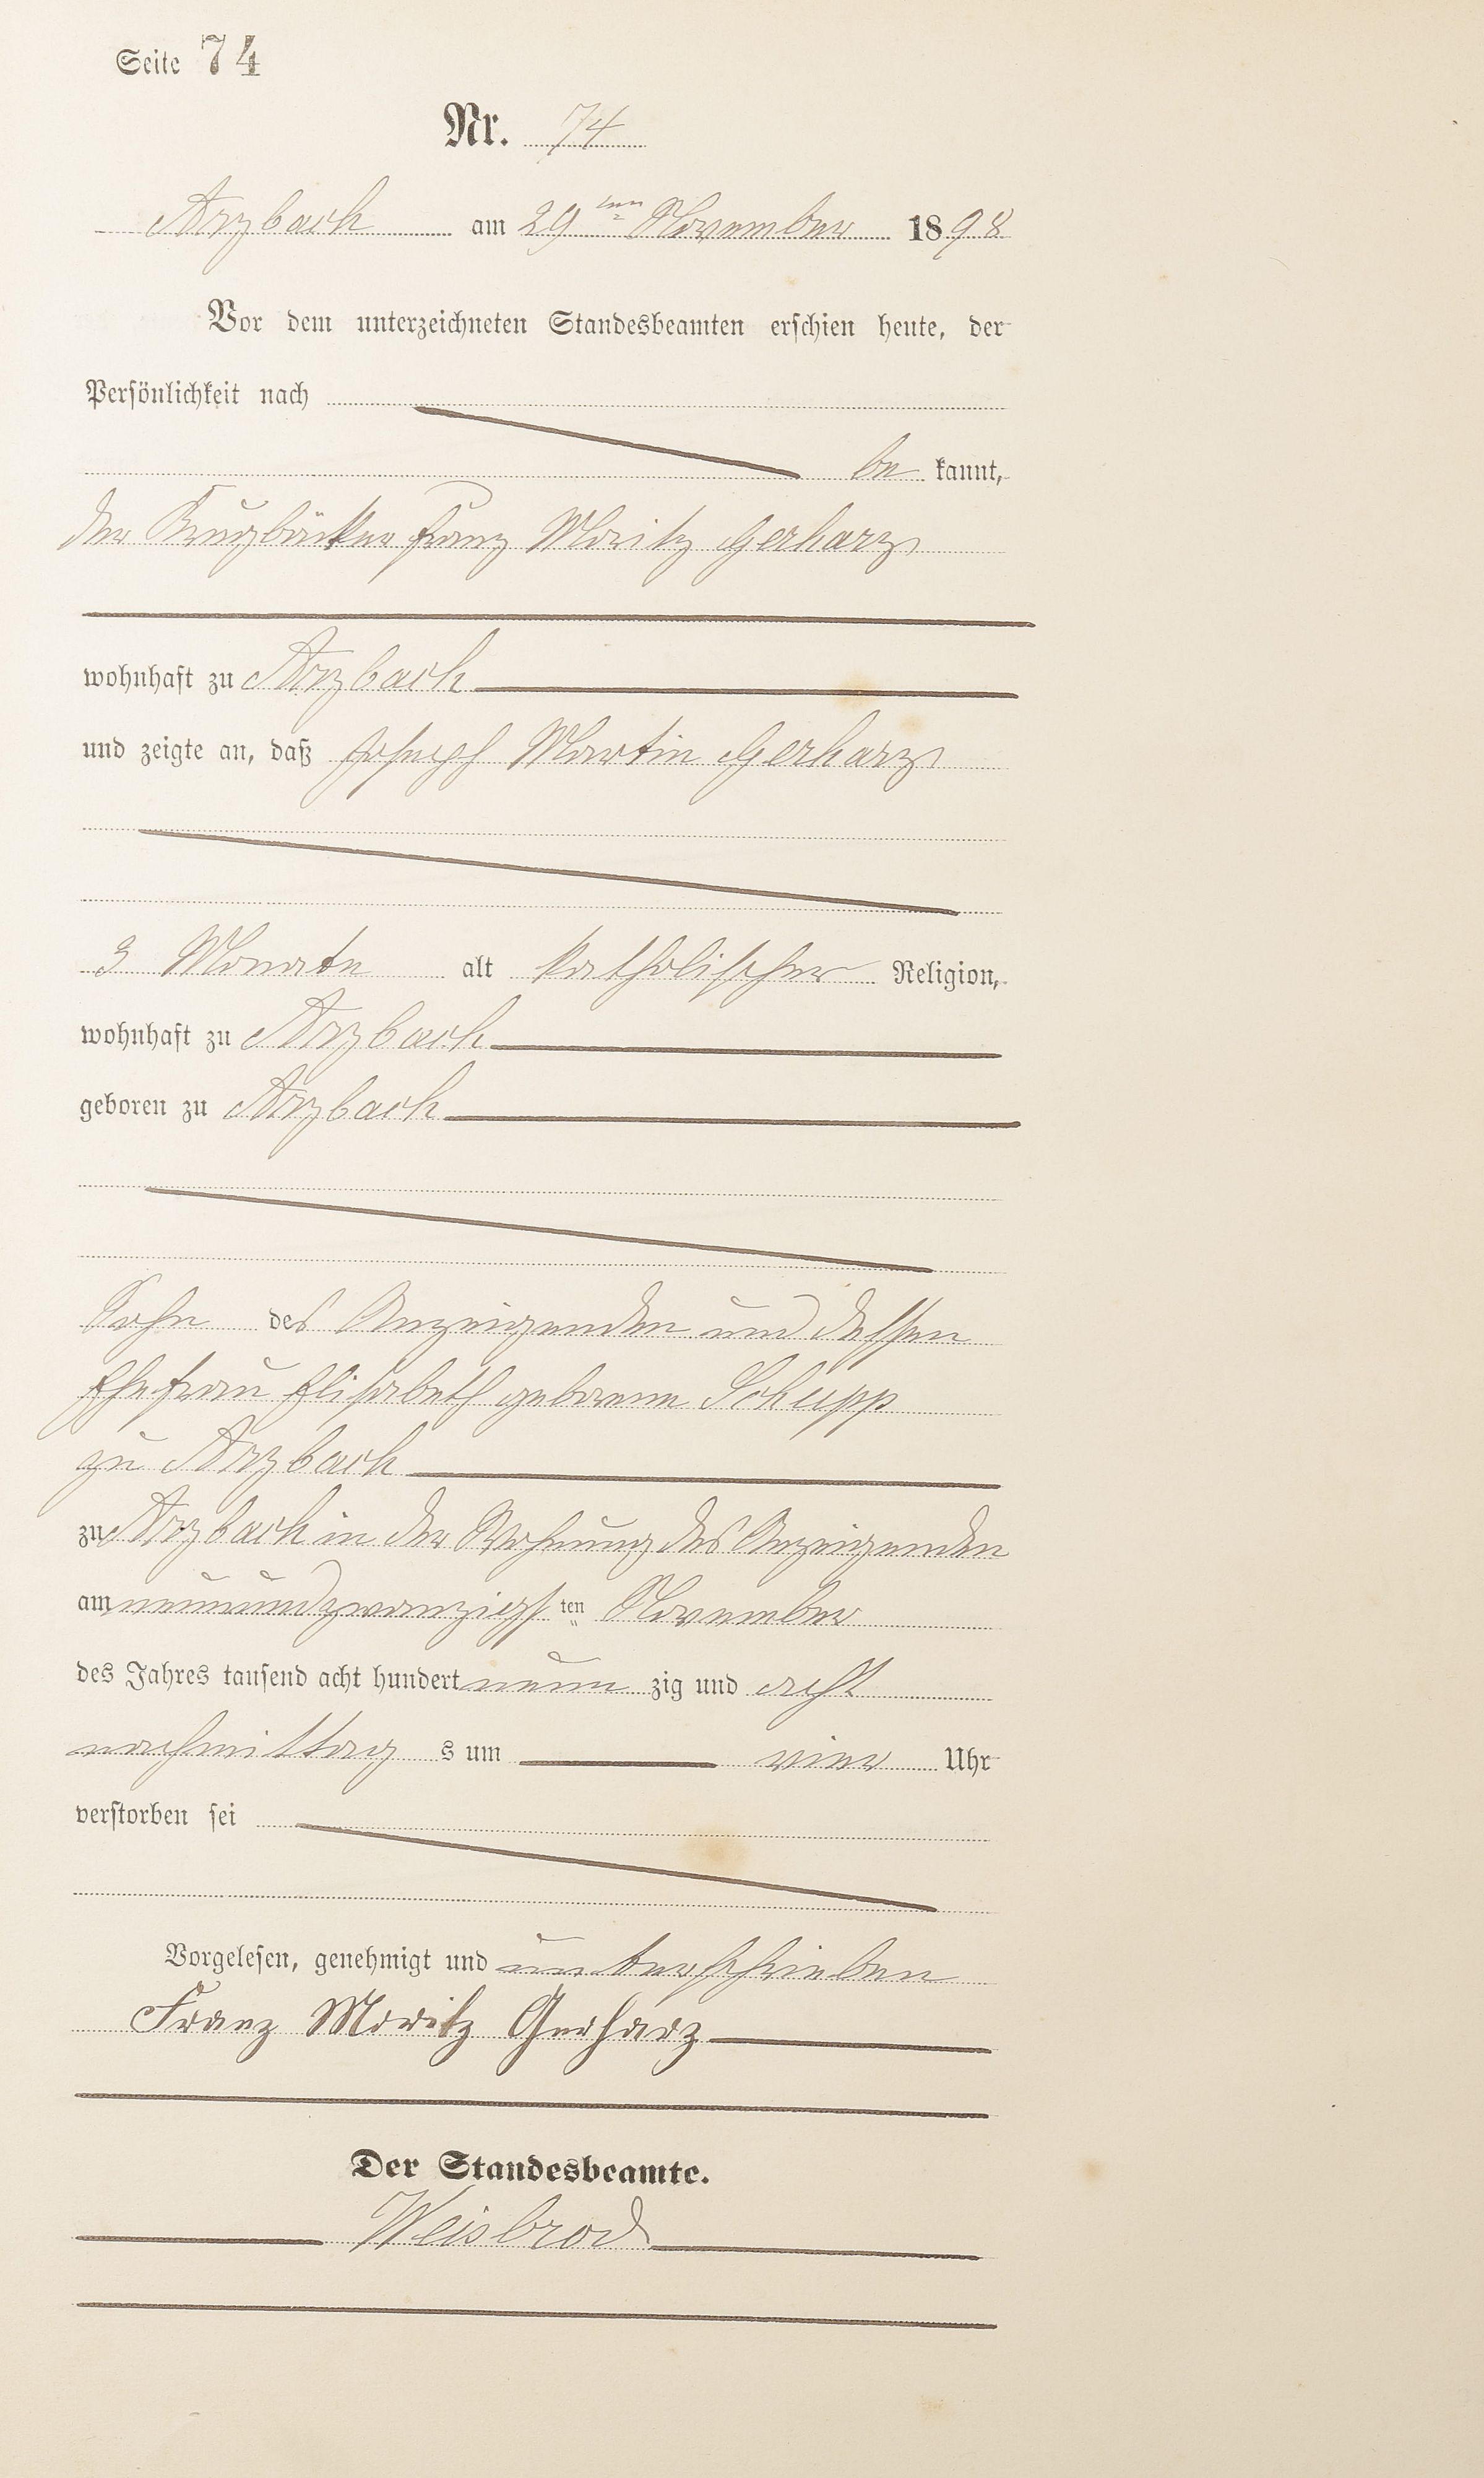 Seite 74
Nr. 74
Arzbach am 29ten November 1898
Vor dem unterzeichneten Standesbeamten erschien heute, der
Persönlichkeit nach
be kannt,
der Krugbäcker Franz Moritz Gerharz
wohnhaft zu Arzbach
und zeigte an, daß Joseph Martin Gerharz
3 Monate alt katholischer Religion,
wohnhaft zu Arzbach
geboren zu Arzbach
Sohn des Anzeigenden und dessen
Ehefrau Elisabeth geborene Schupp
zu Arzbach
zu Arzbach in der Wohnung des Anzeigenden
am neunundzwanzigsten November
des Jahres tausend acht hundert neunzig und acht
nachmittags um vier Uhr
verstorben sei
Vorgelesen, genehmigt und unterschrieben
Franz Moritz Gerharz
Der Standesbeamte.
Weisbrod